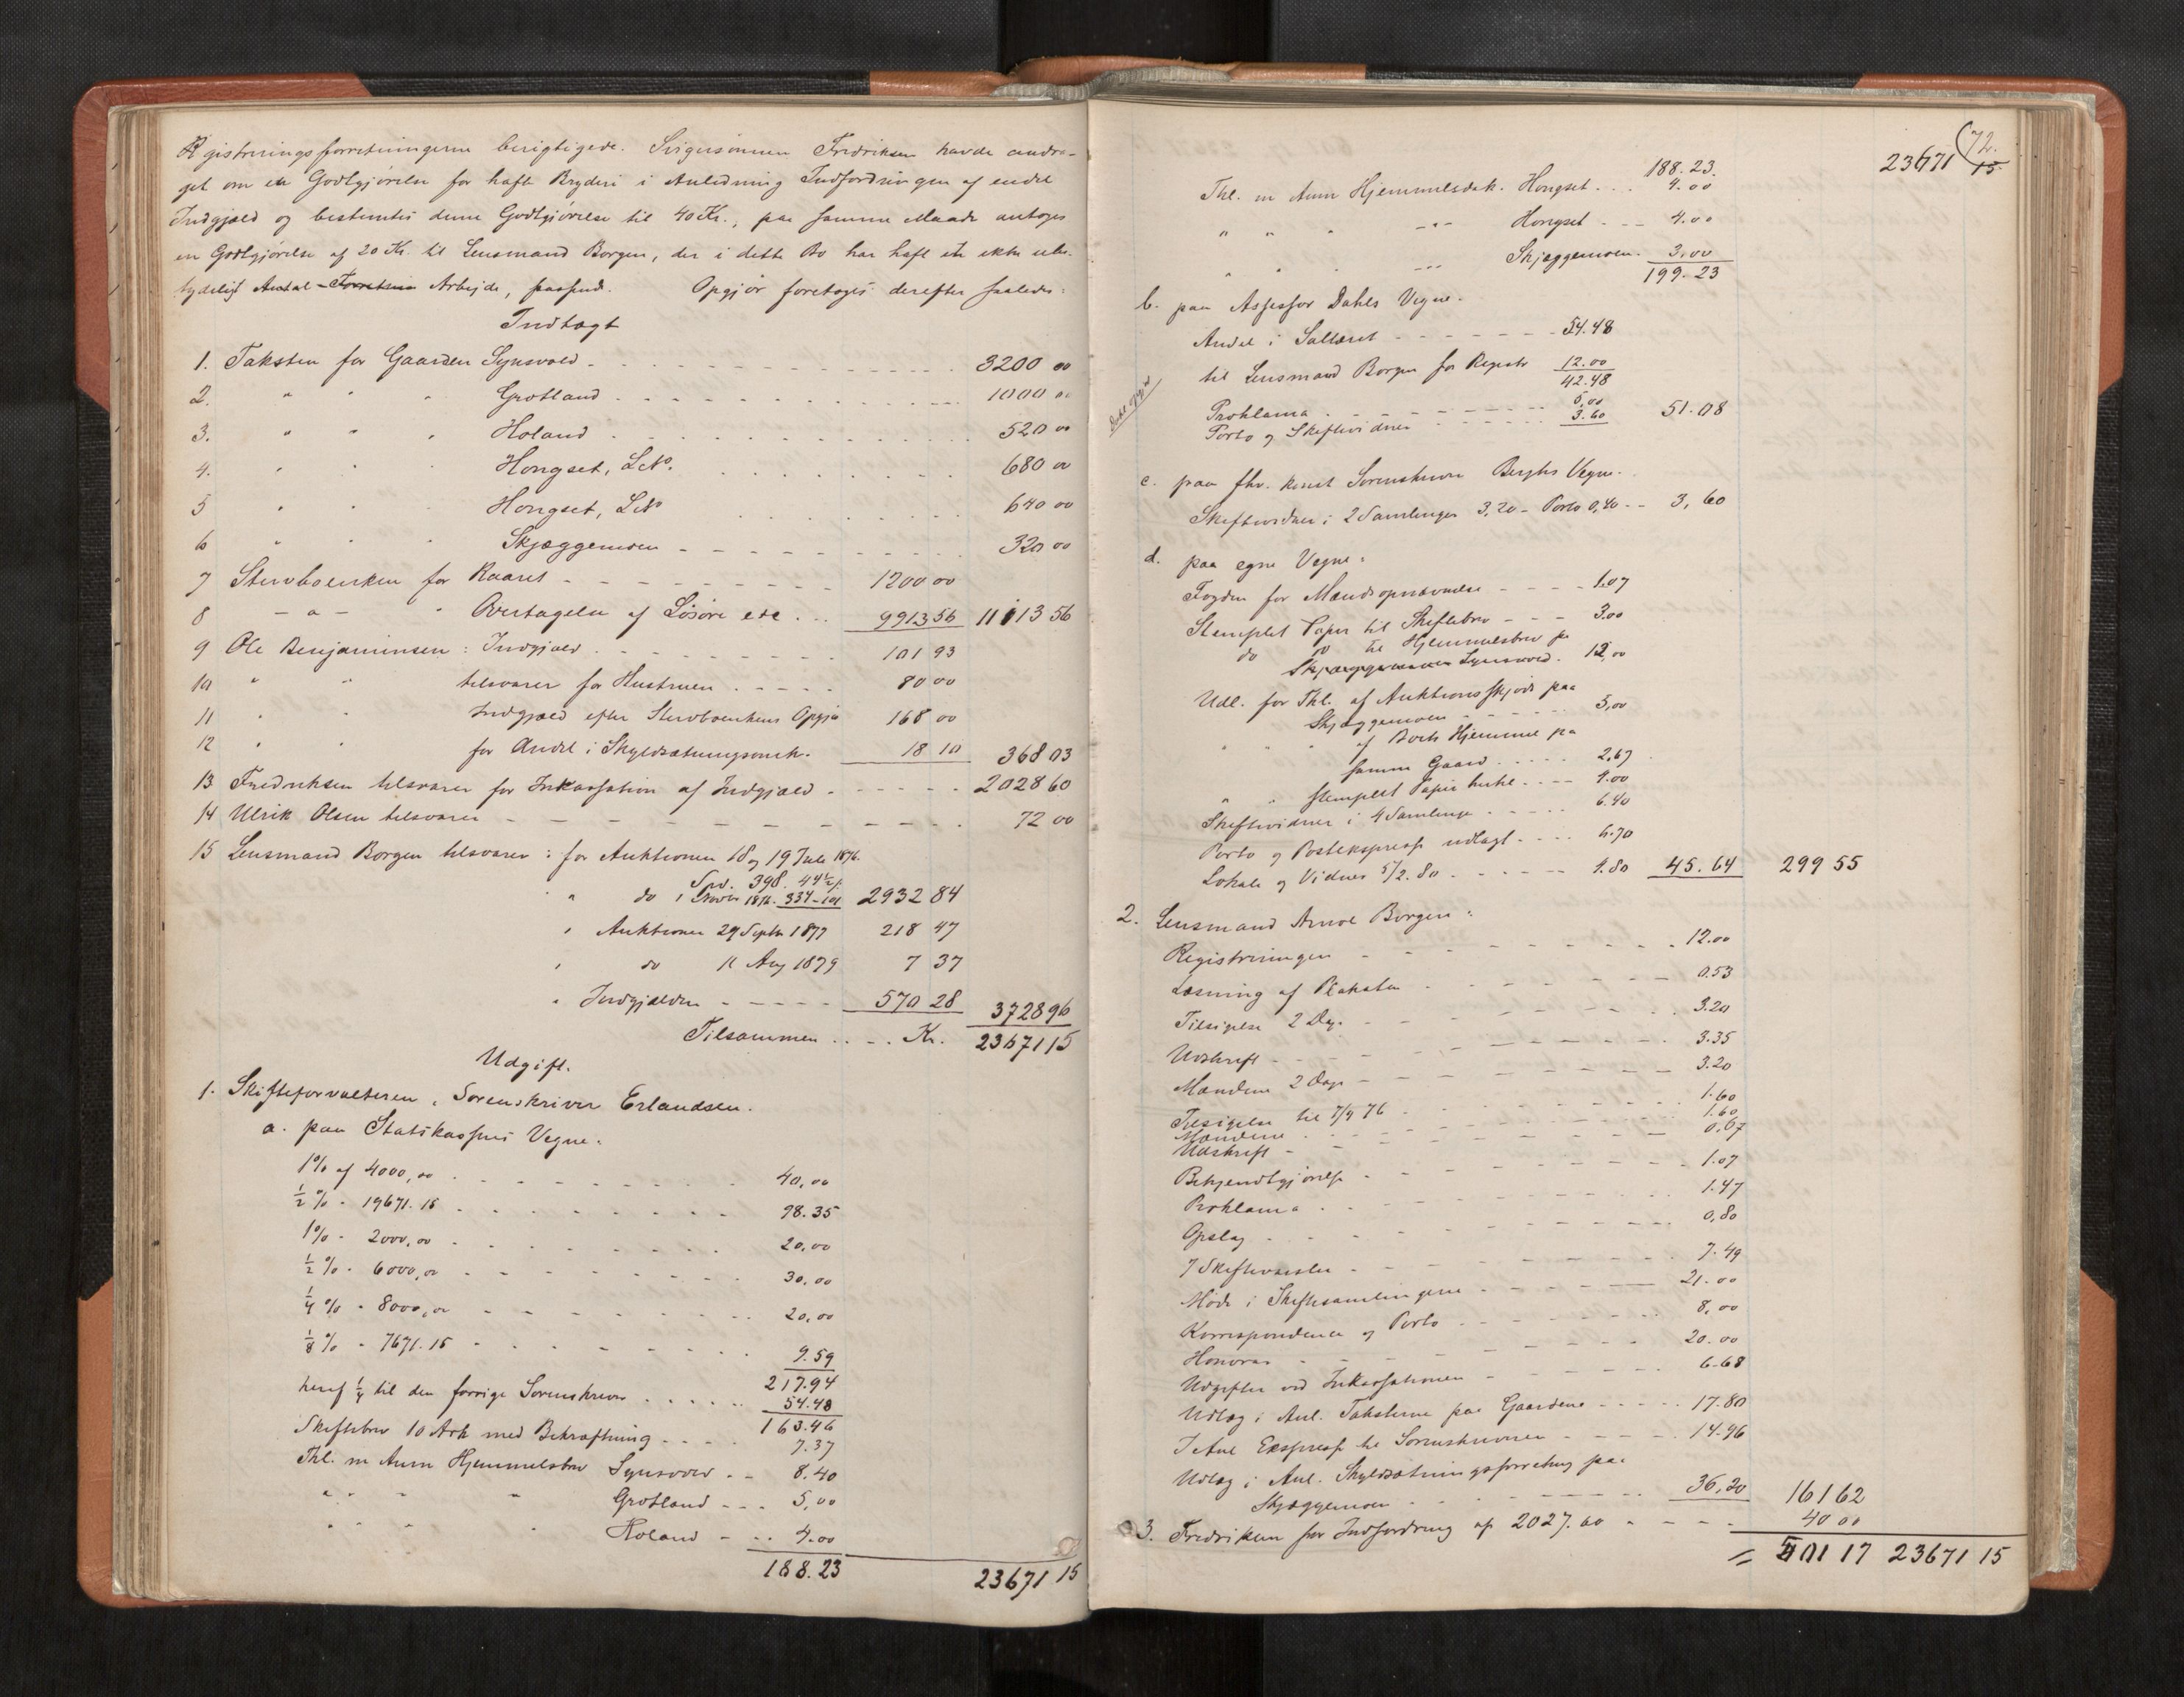 Rgistreringsforretningerne berigtigede. Svigersønnen Fredriksen havde andra-
get om en Godtgjørelse for hafte Bryderi i Anledning Indfordringen af endel
Indgjæld og bestemtes denne Godtgjørelse til 40 Kr., paa samme Maade antoges
en Godtgjørelse af 20 Kr. til Lensmand Borgen, der i dette Bo har haft et ikke ube-
tydeligt Antal Forretnin Arbejde, passende. Opgjør foretoges derefter saaledes:
Indtægt
1. Taksten for Gaarden Synsvold 3200 00
2. " " " Grotland 1000 00
3. " " " Holand 520 00
4. " " " Hongset, L.No. 680 00
5 " " " Hongset, L.No 640 00
6 " " " Skjæggemoen 320 00
7 Stervboenken for Kaaret 1200 00
8 - " - " Overtagelse af Løsøre etc 9913 56 11113 56
9 Ole Benjaminsen: Indgjæld 101 93
10 " " tilsvarer for Hustruen 80 00
11 " " Indgjæld efter Stervboenkens Opgjø 168 00
12 " " for Andel i Skyldsætningsomk. 18 10 368 03
13 Fredriksen tilsvarer for Inkassation af Indgjæld 2028 60
14 Ulrik Olsen tilsvarer 72 00
15 Lensmand Borgen tilsvarer: for Auktionen 18 og 19 Juli 1876.
Spd. 398. 44½
" do 1 Novbr 1876. 334-101 2932 84
" Auktionen 29 Septbr 1877 218 47
" do 11 Aug 1879 7 37
" Indgjælden 570 28 3728 96
Tilsammen Kr. 23671 15
Udgift.
1. Skifteforvalteren, Sorenskriver Erlandsen.
a. paa Statskassens Vegne.
1% af 4000,00 40,00
½ % - 19671.15 98.35
1% - 2000,00 20,00
½ % - 6000,00 30,00
¼ % - 8000,00 20,00
⅛ % - 7671.15 9.59
217.94
heraf ¼ til den forrige Sorenskriver 54.48
163.46
Skiftebrev 10 Ark med Bekræftning 7.37
Thl. m Anm Hjemmelsbrev Synsvold 8.40
" " " " Grotland 5,00
" " " " Holand 4.00
188.23 23671 15
72.
188.23. 23671 15
Thl. m Anm Hjemmelsdok. Hongset 4.00
" " " -"- Hongset 4.00
" " " -"- Skjæggemoen 3.00
199.23
b. paa Assessor Dahls Vegne.
Andel i Sallæret 54.48
til Lensmand Borgen for Registr 12.00
42.48
Proklama 5,00
Porto og Skiftevidner 3.60 51.08
c. paa fhv. konst Sorenskriver Berghs Vegne.
Skiftevidner i 2 Samlinger 3,20 - Porto 0,40 3,60
d. paa egne Vegne:
Fogden for Mændsopnævnelse 1.07
Stemplet Papir til Skiftebrev 3.00
do do til Hjemmelsbrev paa
Skjæggemoen Synsvold. 12,00
Udl. for Thl. af Auktionsskjøde paa
Skjæggemoen 3,00
" " " af Boets Hjemmel paa
samme Gaard 2.67
" " stemplet Papir hertil 4.00
Skiftevidner i 4 Samlinger 6.40
Porto og Postekspress udlagt 6.70
Lokale og Vidner 5/2.80 4.80 45.64 299 55
2. Lensmand Arnol Borgen:
Registreringen 12.00
Læsning af Plakaten 0.53
Tilsigelse 2 Dage 3.20
Udskrift 3.35
Mændene 2 Dage 3.20
Tilsigelse til 7/9 76 1.60
Mændene 1.60
Udskrift 0.67
Bekjendtgjørelse 1.07
Proklama 1.47
Opslag 0,80
7 Skiftevarsler 7.49
Møde i Skiftesamlingerne 21.00
Korrespondence og Porto 8.00
Honorar 20.00
Udgifter ved Inkassationen 6.68
Udlæg i Anl. Taksterne paa Gaardene 17.80
I Anl Express til Sorenskriveren 14.96
Udlæg i Anl. Skyldsætningsforretning paa
Skjæggemoen 36,20 161 62
3. Fredriksen for Indfordring af 2027.60 40 00
= 501 17 23671 15